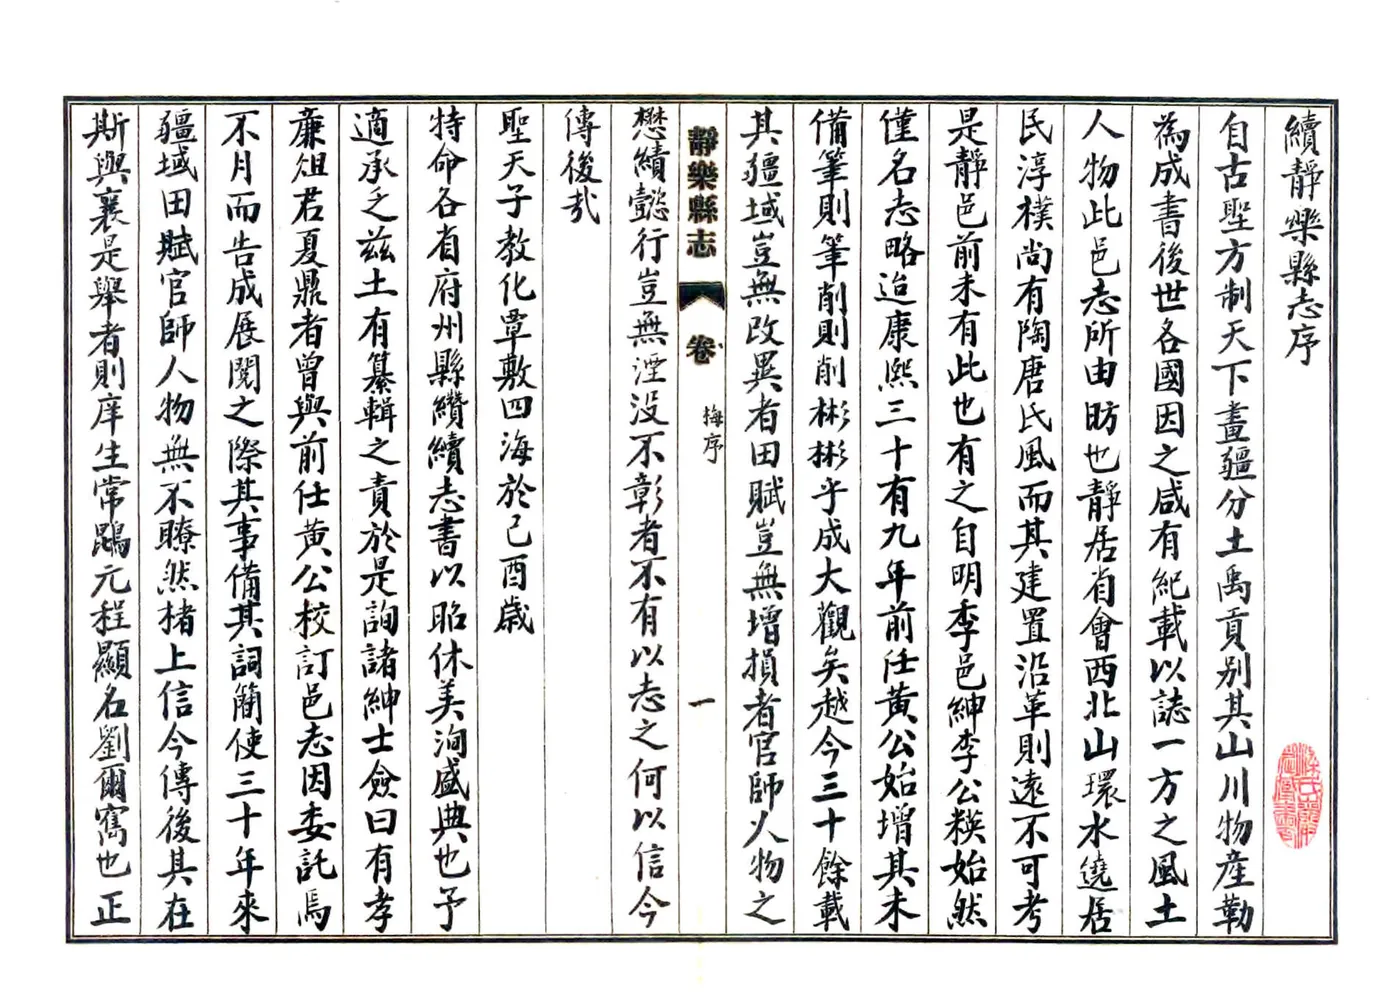 續靜樂縣志序
自古聖方制天下畫疆分土禹貢别其山川物產勒
為成書後世各國因之咸有紀載以誌一方之風土
人物此邑志所由昉也靜居省會西北山環水遶居
民淳樸尚有陶唐氏風而其建置沿革則遠不可考
是靜邑前未有此也有之自明季邑紳李公糉始然
僅名志略迨康熙三十有九年前任黃公始增其未
備筆則筆削則削彬彬乎成大觀矣越今三十餘載
其疆域豈無改異者田賦豈無增損者官師人物之
靜樂縣志
卷
梅序
一
懋績懿行豈無湮沒不彰者不有以志之何以信今
傳後哉
聖天子教化覃敷四海於己酉歲
特命各省府州縣纘續志書以昭休美洵盛典也予
適承乏兹土有纂輯之責於是詢諸紳士僉曰有孝
廉俎君夏鼎者曾與前任黃公校訂邑志因委託焉
不月而告成展閱之際其事備其詞簡使三十年來
疆域田賦官師人物無不瞭然楮上信今傳後其在
斯與襄是舉者則庠生常鵾元程顯名劉爾寯也正